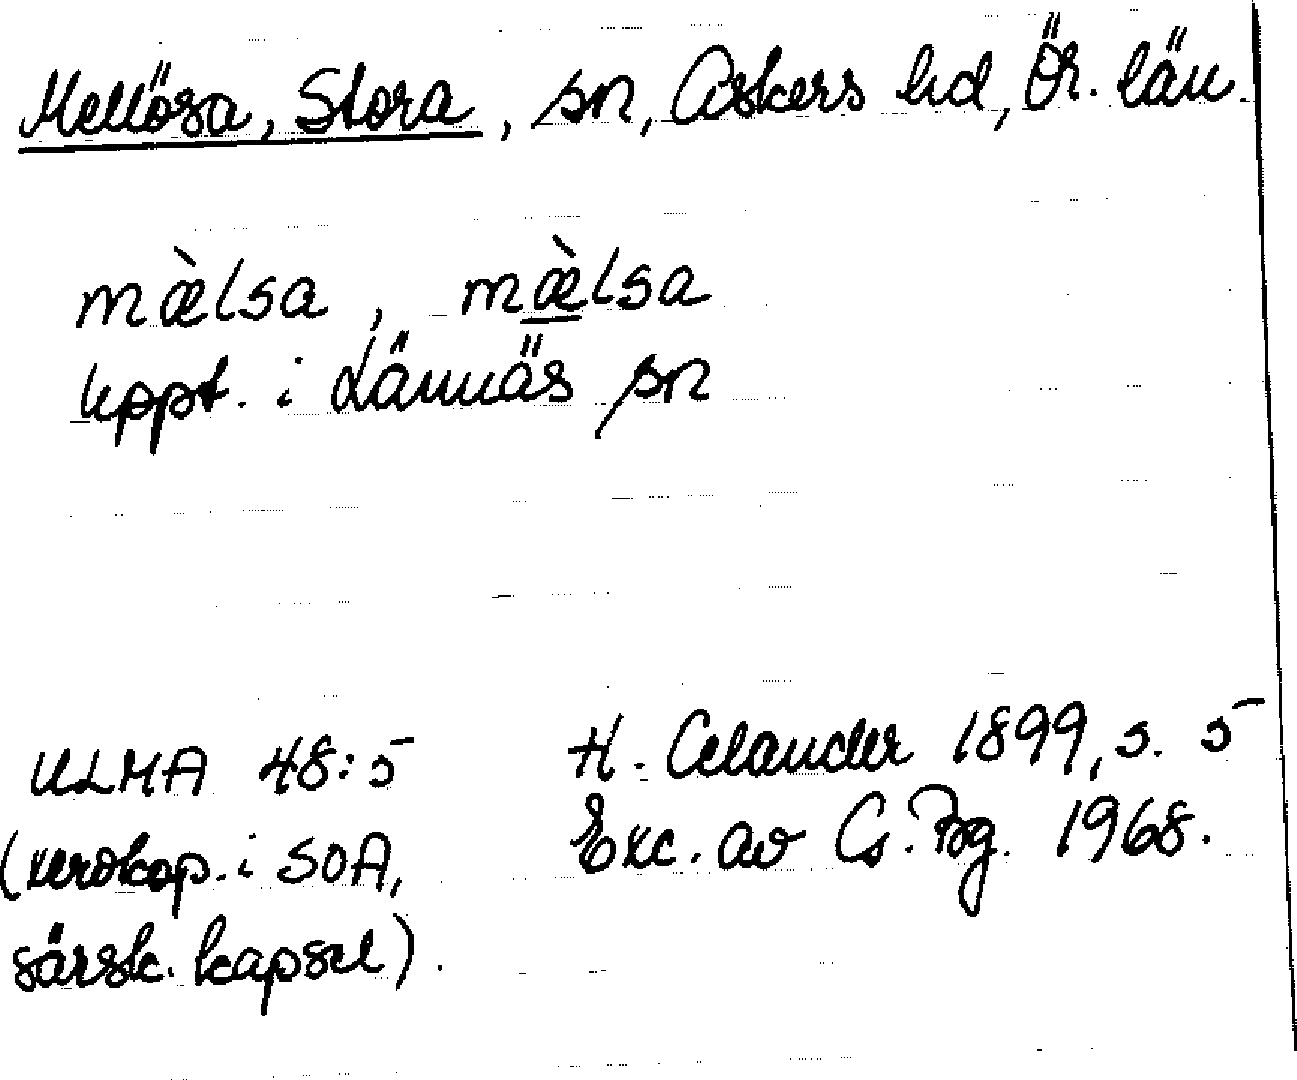 Mellösa, Stora, sn, Askers hd, Ör. län
mæ̀lsa, mæ̲̀lsa
uppt. i Lännäs sn
ULMA 48:5
H. Celander 1899, s. 5
(xerokop. i SOA,
Exc. av G. Bg. 1968.
särsk. kapsel).